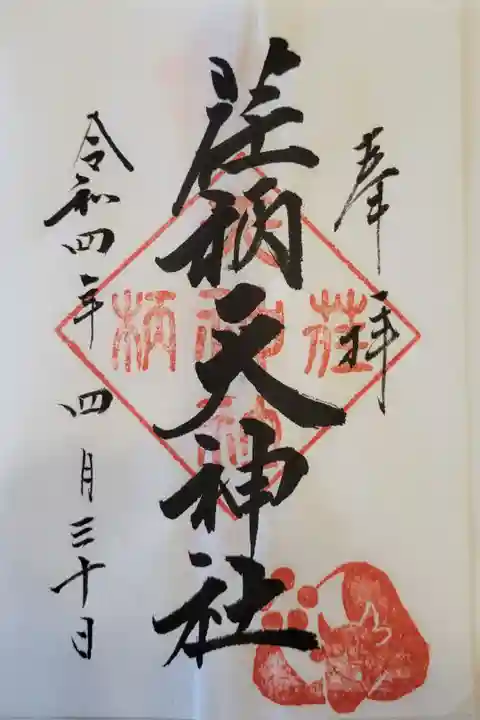 奉拝
荏柄天神社
令和四年 四月三十日
荏
柄
天
神
社